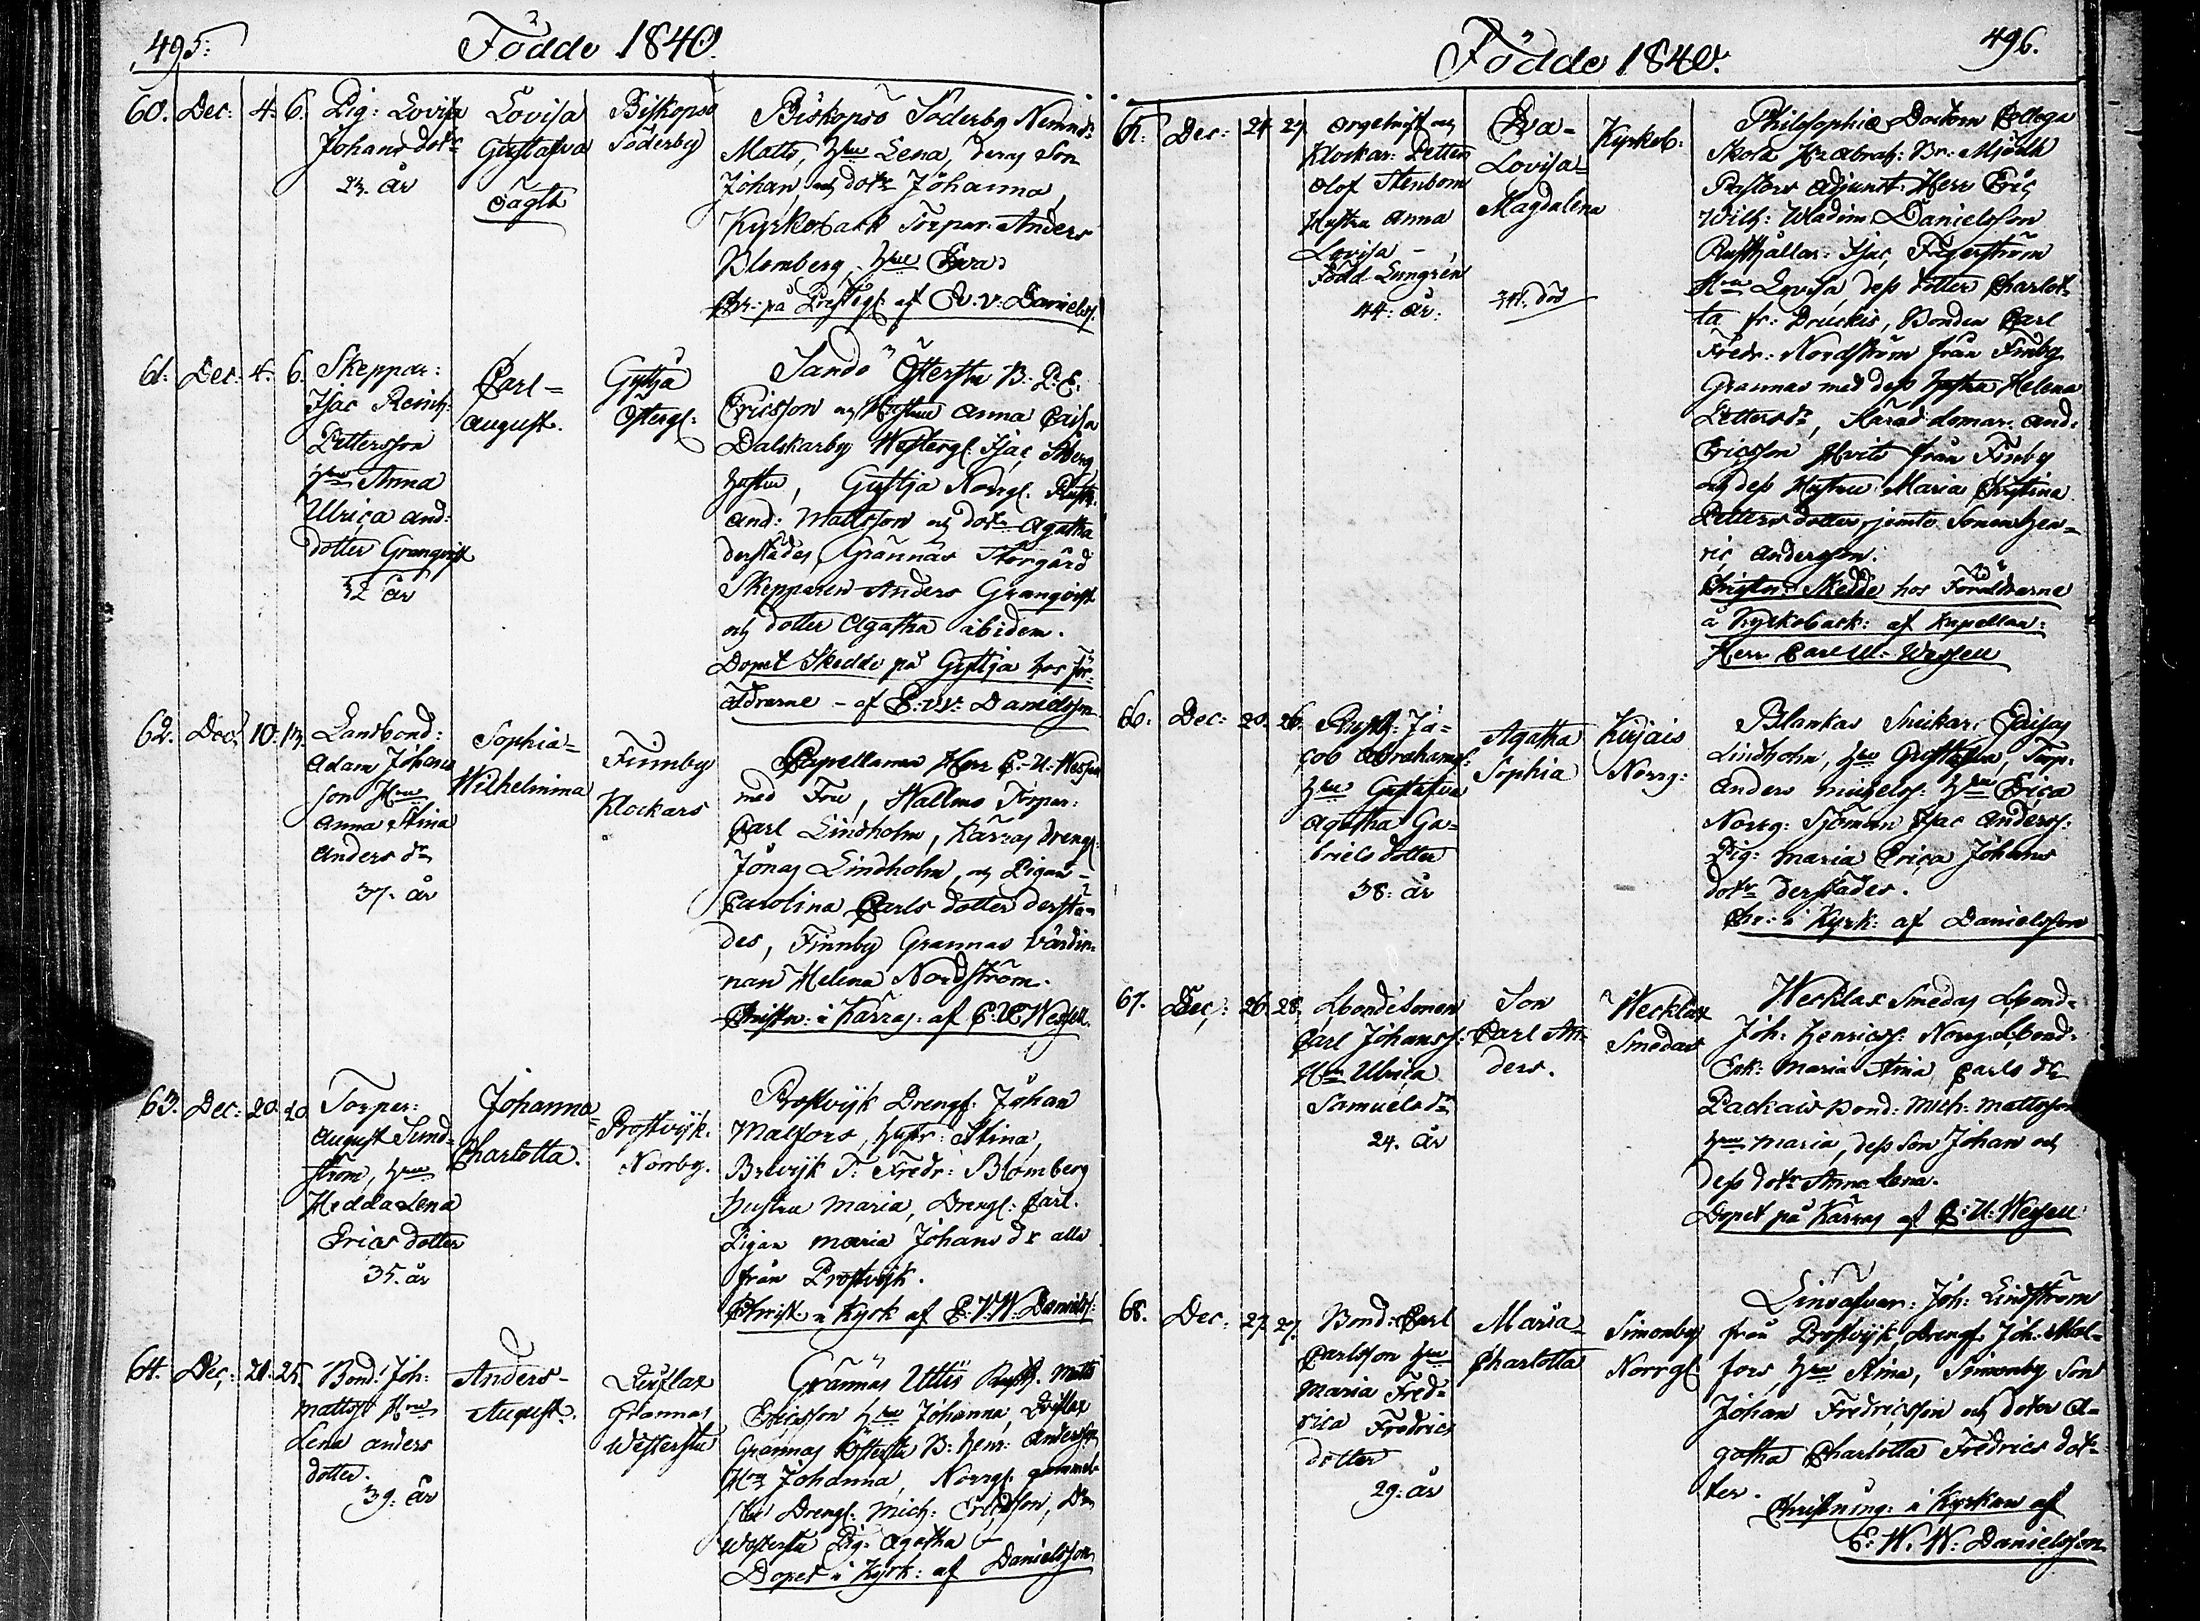 495:
Födde 1840.
60. Dec: 4. 6.
Pig: Lovisa
Johans dotr
23. år
Lovisa
Gustafva
oägta
Biskopsö
Söderby
Biskopsö Söderby Nemnd:
Matts, Hru Lena, deras Son
Johan, och dotr Johanna,
Kyrkoback Torpar: Anders
Blomberg, Hru Eva
Chr: på Prestg: af E. v: Danielss.
61. Dec: 4. 6.
Skeppar:
Isac Reinh:
Pettersson
Hru Anna
Ulrica And:
dotter Granqvist
32 år
Carl=
August.
Gyttja
Österg:
Sandö Östersta B:
Ericsson och Hustru Anna Caisa
Dalskarby Westergl: Isac
hustru, Gyttja Norrg. Rusth.
And: Mattsson och dotr Agatha
derstädes, Grännäs Storgård
Skepparen Anders Granqvist
och dotter Agatha ibidem.
Dopet Skedde på Gyttja hos för-
äldrarne - af E: W: Danielsson
62. Dec: 10. 13.
Landbond:
Adam Johans
son Hru
Anna Stina
Anders dr
37. år
Sophia=
Wilhelmina
Finnby
Klockars
Capellanen Herr C. U. Wessell
med Fru, Torpar:
Carl Lindholm, Kärras Drengl:
Jonas Lindholm, och Pigan -
Carolina Carls dotter derstä-
des, Finnby Grannas värdin-
nan Helena Nordström.
Christn: i Kärras: af C. U. Wessell.
63. Dec: 20. 20
Torpar:
August Sund-
ström, Hru
Hedda Lena
Erics dotter
35. år
Johanna=
Charlotta.
Prostvijk.
Norrby.
Prostvijk Drengl: Johan
Malfors, hustr: Stina,
Brevijk T: Fredr: Blomberg
Hustru Maria, Drengl: Carl.
Pigan Maria Johans dr alla
från Prostvijk.
Christ. i Kyrk af E: V. W. Daniels:
64. Dec: 21. 25.
Bond: Joh:
Mattss: Hru
Lena Anders
dotter.
39. år
Anders-
August.
Grannas
Westersta
Grännäs Uttis Rusth. Matts
Ericsson Hru Johanna,
Grannas Östersta B: Henr: Andersson
Hru Johanna, Norrg:
Drengl: Mich: Ericsson,
Westersta Pig: Agatha
Dopet i Kyrk: af Danielsson
Födde 1840.
496.
65. Dec: 21. 29
Orgelnist och
Klockar: Petter
Olof Stenbom
Hustru Anna
Lovisa -
Född Lungrén
44. år.
Eva-
Lovisa=
Magdalena
död
Kyrkob.
Philosophiæ Doctorn Collega
Skola Hr Abrah: Br: Mjödh
Pastors Adjunct: Herr Eric
Wilh: Wladim: Danielsson
Rusthållar: Isac Fagerström
Hru Lovisa dess dotter Charlot-
ta fr: Druckis, Bonden Carl
Fredr: Nordström från Finby
Grannas med dess hustru Helena
Petters dr, Härads domar: And:
Ericsson Hvits från Finby
och dess Hustru Maria Christina
Petters dotter, jemte Sonen Hen-
ric Andersson.
Christn: Skedde hos Föräldrarne
å Kyrkoback: af Kapellan:
Herr Carl U. Wessell
66. Dec: 20. 26.
Rusth: Ja=
cob Abrahams:
Hru Gustafva
Agatha Ga-
briels dotter
38. år
Agatha
Sophia
Kirjais
Norrg:
Blankas Snikar:
Lindholm, Hru Gustafva, Torp:
Anders Hru Erica
Norrg: Sjöman Isac Anderss:
Pig: Maria Erica Johans
dotr derstädes.
Chr: i Kyrk: af Danielsson
67. Dec: 26. 28.
Lbondesonen
Carl Johanss:
Hru Ulrica
Samuels dr
24. år
Son
Carl An-
ders.
Wecklax
Smedas
Wecklax Smedas Lbond-
Joh: Henricss: Norrg: Lbond:
Enk: Maria Stina Carls dr
Packais Bond: Mich: Mattsson
Hru Maria, dess Son Johan och
dess dotr Anna Lena.
Dopet på Kärras af C: U: Wessell
68. Dec: 27. 27.
Bond: Carl
Carlsson Hru
Maria Fred-
rica Fredrics
dotter
29. år
Maria=
Charlotta
Simonby
Norrg:
Linväfvar: Joh: Lindström
från Prostvijk, Drengl: Joh: Mal-
fors Hru Stina, Simonby Son
Johan Fredricsson och dotr A-
gatha Charlotta Fredrics dot-
ter.
Christning: i Kyrkan af
E: W. W: Danielsson